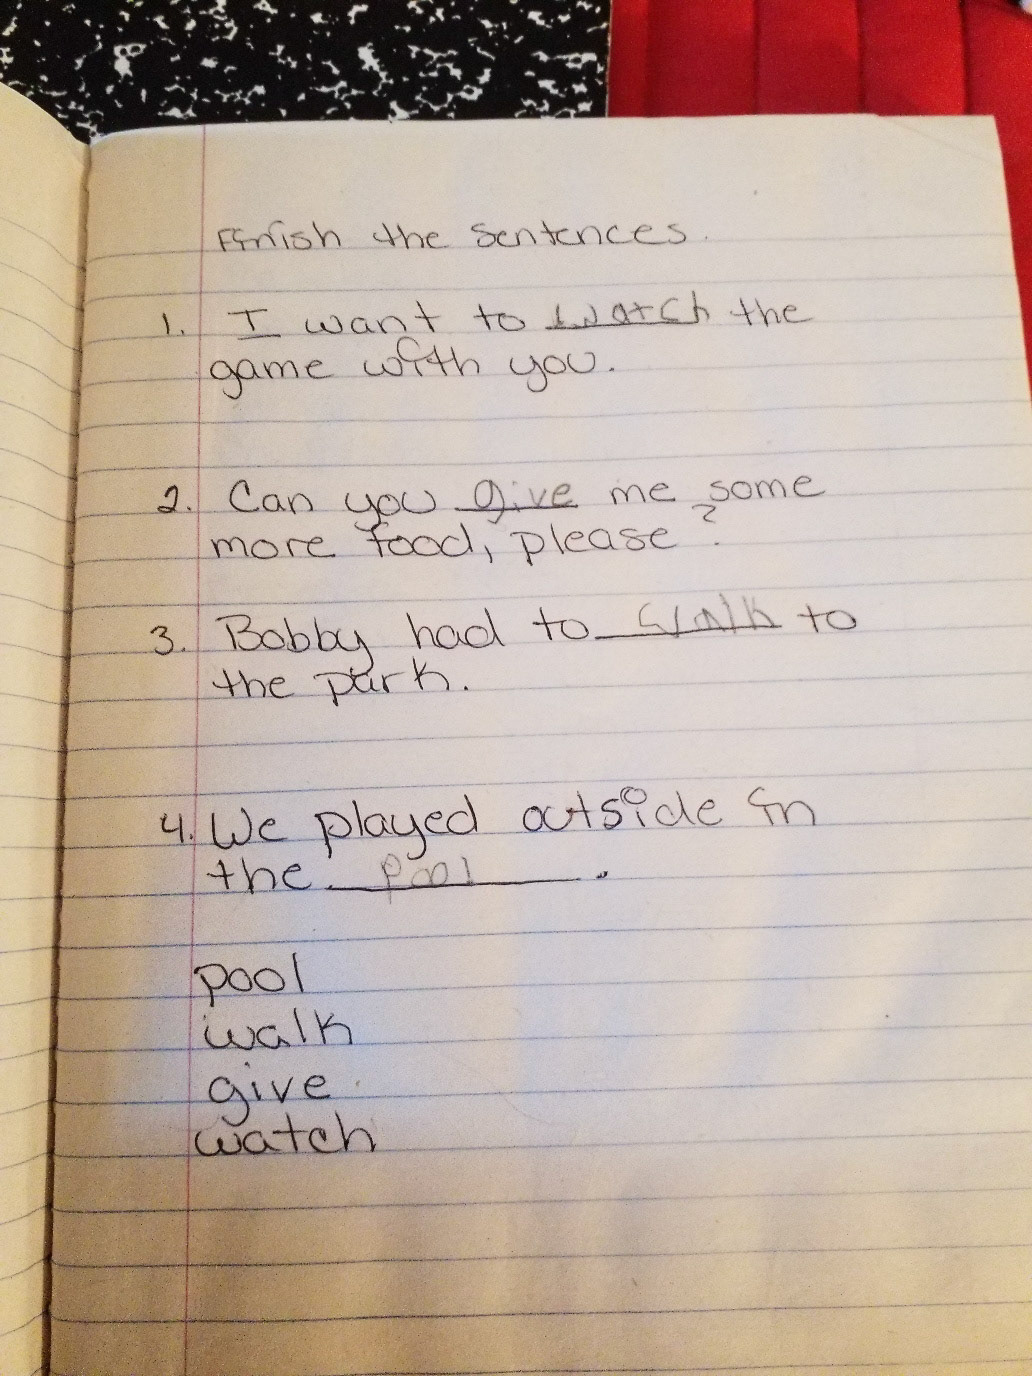 Finish the sentences.
1. I want to watch the
game with you.
2. Can you give me some
more food, please?
3. Bobby had to walk to
the park.
4. We played outside in
the pool.
pool
walk
give
watch